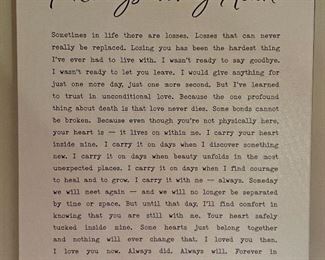 Sometimes in life there are losses. Losses that can never
really be replaced. Losing you has been the hardest thing
I've ever had to live with. I wasn't ready to say goodbye.
I wasn't ready to let you leave. I would give anything for
just one more day, just one more second. But I've learned
to trust in unconditional love. Because the one profound
thing about death is that love never dies. Some bonds cannot
be broken. Because even though you're not physically here,
your heart is — it lives on within me. I carry your heart
inside mine. I carry it on days when I discover something
new. I carry it on days when beauty unfolds in the most
unexpected places. I carry it on days when I find courage
to heal and to grow. I carry it with me — always. Someday
we will meet again — and we will no longer be separated
by time or space. But until that day, I'll find comfort in
knowing that you are still with me. Your heart safely
tucked inside mine. Some hearts just belong together
and nothing will ever change that. I loved you then.
I love you now. Always did. Always will. Forever in